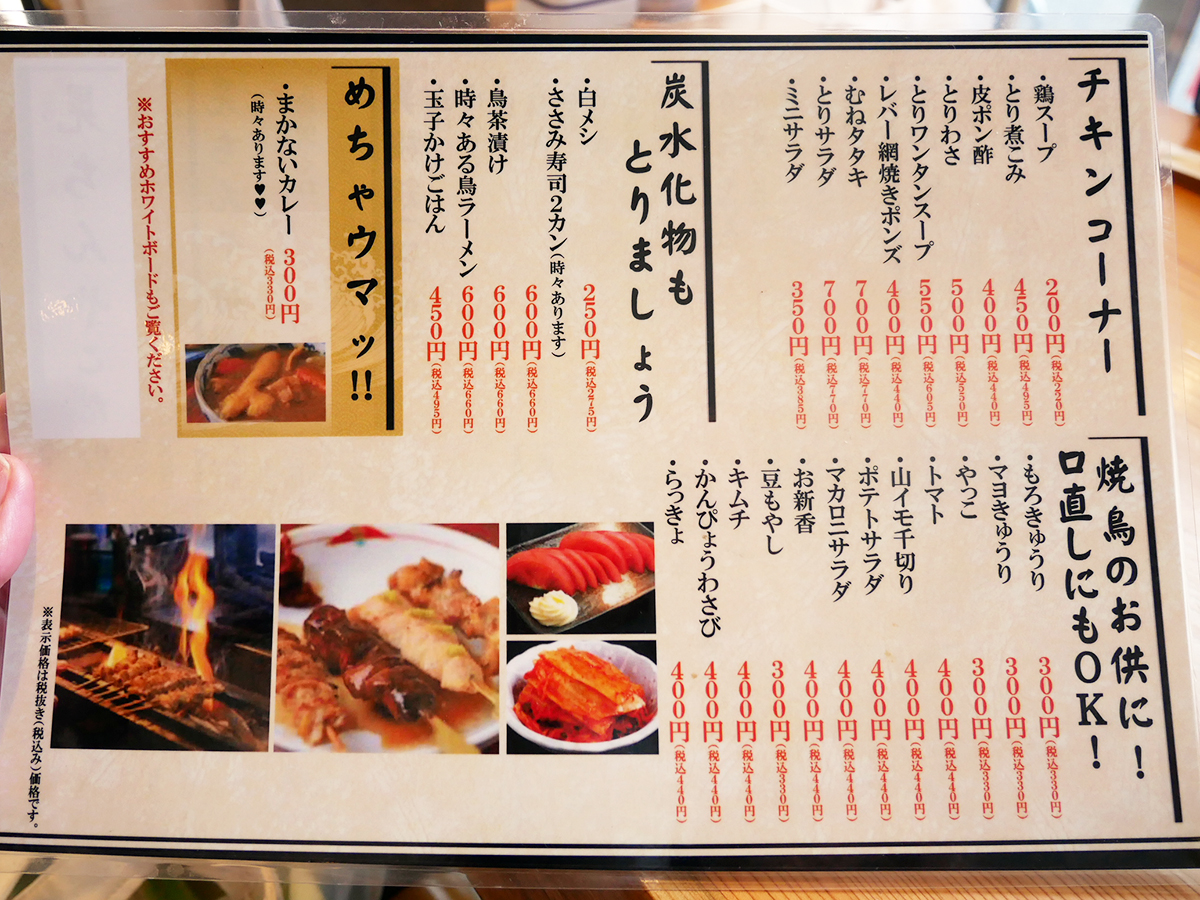 チキンコーナー
・鶏スープ 200円(税込220円)
・とり煮こみ 450円(税込495円)
・皮ポン酢 400円(税込440円)
・とりわさ 500円(税込550円)
・とりワンタンスープ 550円(税込605円)
・レバー網焼きポンズ 400円(税込440円)
・むねタタキ 700円(税込770円)
・とりサラダ 700円(税込770円)
・ミニサラダ 350円(税込385円)
炭水化物も
とりましょう
・白メシ 250円(税込275円)
・ささみ寿司2カン(時々あります) 600円(税込660円)
・鳥茶漬け 600円(税込660円)
・時々ある鳥ラーメン 600円(税込660円)
・玉子かけごはん 450円(税込495円)
めちゃウマッ!!
・まかないカレー 300円(税込330円)
(時々あります♥♥)
※おすすめホワイトボードもご覧ください。
焼鳥のお供に!
口直しにもOK!
・もろきゅうり 300円(税込330円)
・マヨきゅうり 300円(税込330円)
・やっこ 300円(税込330円)
・トマト 400円(税込440円)
・山イモ千切り 400円(税込440円)
・ポテトサラダ 400円(税込440円)
・マカロニサラダ 400円(税込440円)
・お新香 400円(税込440円)
・豆もやし 300円(税込330円)
・キムチ 400円(税込440円)
・かんぴょうわさび 400円(税込440円)
・らっきょ 400円(税込440円)
※表示価格は税抜き(税込み)価格です。